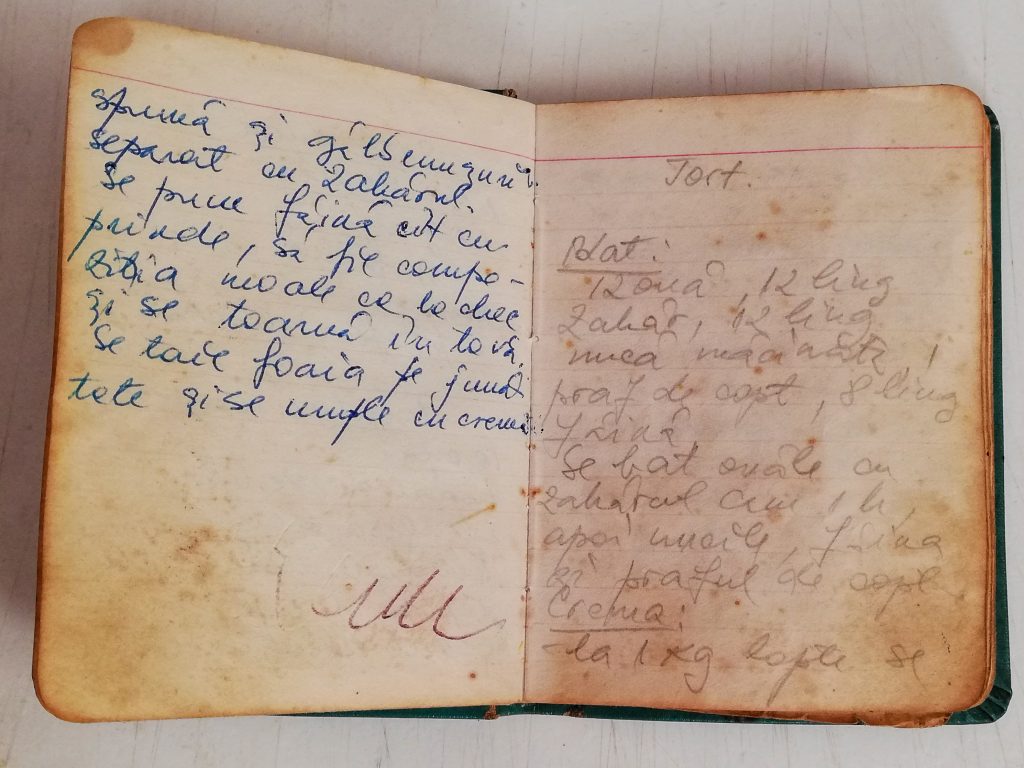 spumă și gălbenușuri
separat cu zahărul.
Se pune făină cît cu-
prinde, să fie compo-
ziția moale ca la chec
și se toarnă în tavă.
Se taie foaia pe jumă
tate și se umple cu cremă.
Tort.
Blat:
12 ouă, 12 ling
zahăr, 12 ling
nucă măcinată, 1
praf de copt, 8 ling
făină.
Se bat ouăle cu
zahărul cam 1 h,
apoi nucile, făina
și praful de copt.
Crema:
- la 1 kg lapte se